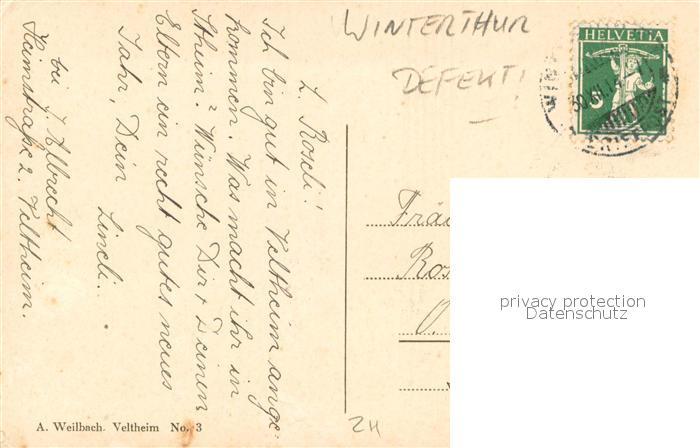 WINTERTHUR
DEFEKT!
HELVETIA
5
L. Roseli!
Ich bin gut in Veltheim ange-
kommen. Was macht ihr in
Stheim? Wünsche Dir & Deinen
Eltern ein recht gutes neues
Jahr, Dein
Lineli.
bei J. Albrecht
Heimstraße 2. Veltheim.
Fräu
Ros
O.
privacy protection
Datenschutz
A. Weilbach. Veltheim No. 3
ZH